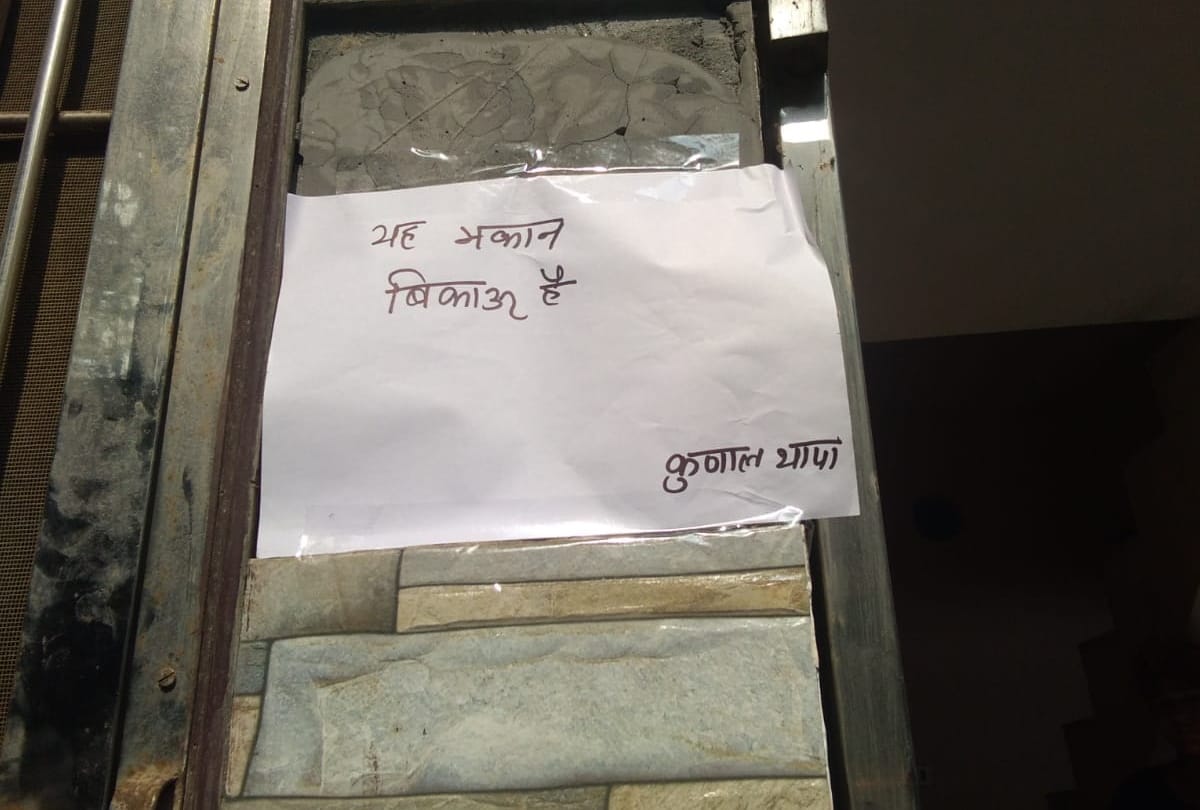 यह मकान
बिकाऊ है
कुणाल थापा